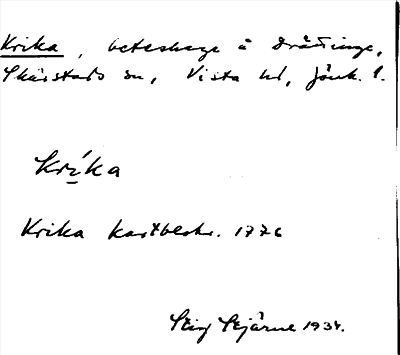 Krika, beteshage å Drättinge,
Skärstads sn, Vista hd, Jönk. l.
Kríka
Krika kartbeskr. 1776
Stig Stjärne 1934.